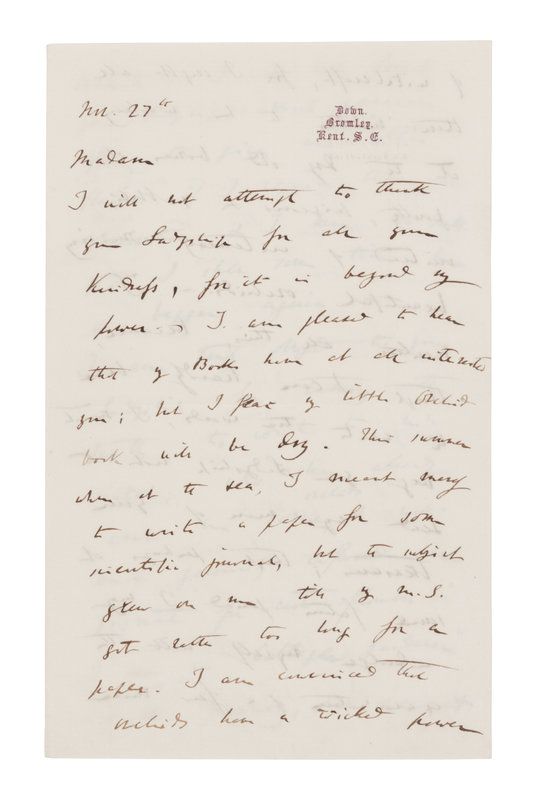 Down.
Bromley.
Kent. S.E.
Nov. 27th
Madam
I will not attempt to thank
your Ladyship for all your
kindness, for it is beyond my
power. — I am pleased to hear
that my Books have at all interested
you; but I fear my little Orchid
book will be dry. This summer
when at the sea, I meant merely
to write a paper for some
scientific journal, but the subject
grew on me till my M.S.
got rather too long for a
paper. I am convinced that
orchids have a wicked power